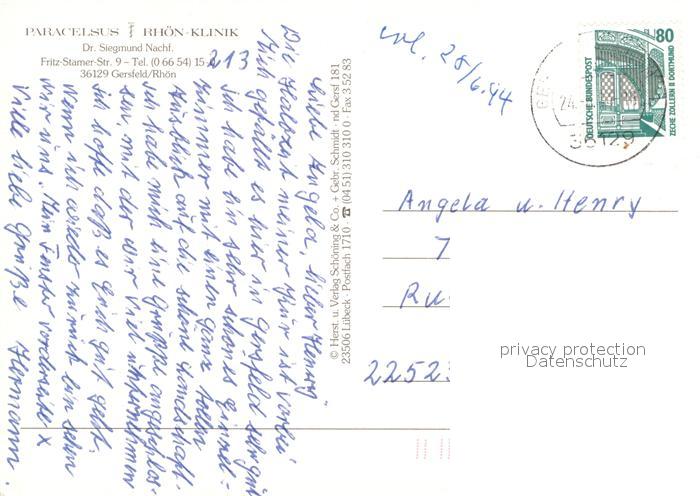 PARACELSUS RHÖN-KLINIK
Dr. Siegmund Nachf.
Fritz-Stamer-Str. 9 – Tel. (0 66 54) 15
36129 Gersfeld/Rhön
213
Liebe Angela, lieber Henry
Die Halbzeit meiner Kur ist vorbei
Mir gefällt es hier in Gersfeld sehr gut
ich habe ein sehr schönes Einzel-
zimmer mit einen ganz tollen
Ausblick auf die schöne Landschaft.
ich habe mich eine Gruppe angeschlos-
sen, mit der wir viel unternehmen
ich hoffe daß es Euch gut geht.
Wenn ich wieder zurück bin sehn
wir uns. Mein Fenster Vorderseite x
Viele liebe Grüße Hermann.
© Herst. u. Verlag Schöning & Co. + Gebr. Schmidt · nd Gensf 1181
23506 Lübeck · Postfach 1710 · ☎ (04 51) 310 310 0 · Fax 3 52 83
erl. 28/6.94
80
DEUTSCHE BUNDESPOST
ZECHE ZOLLERN II DORTMUND
24.
36129
Angela u. Henry
7
Ru
2252
privacy protection
Datenschutz